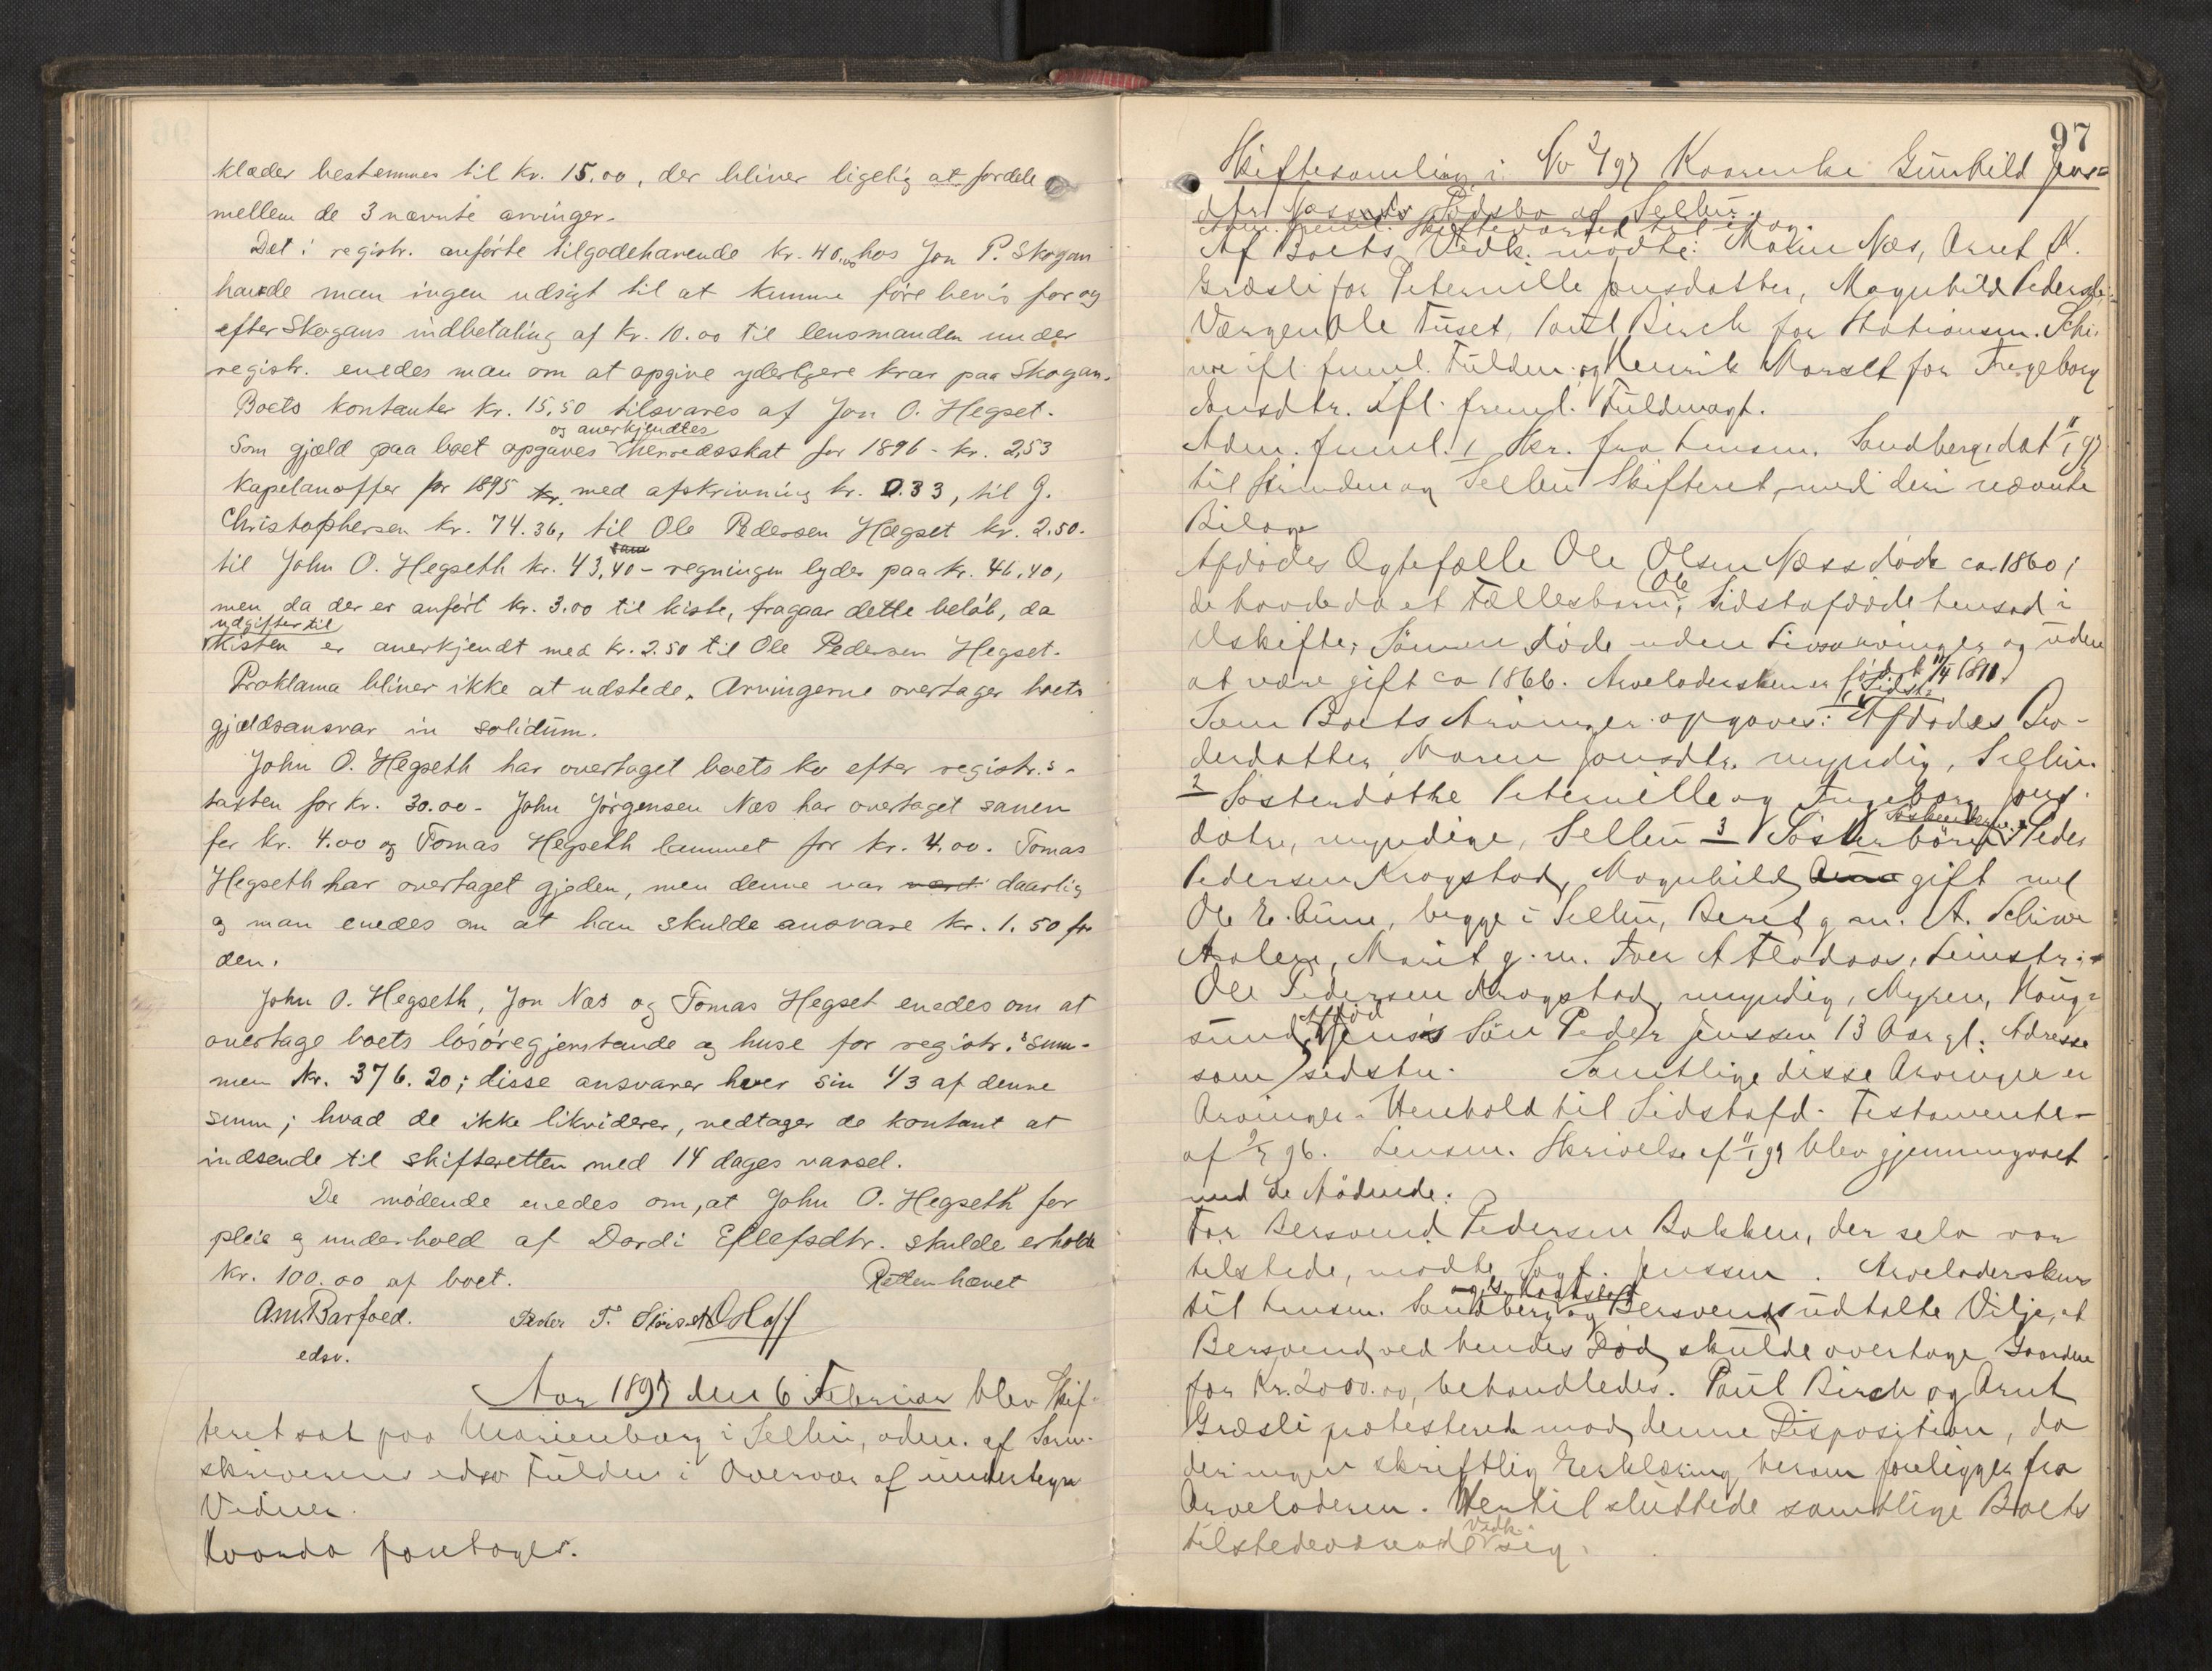 klæder bestemmes til kr. 15.00, der bliver ligelig at fordele
mellem de 3 nævnte arvinger.
Det i registr. anførte tilgodehavende kr. 40.00 hos Jon P. Skogan
havde man ingen udsigt til at kunne føre bevis for og
efter Skogans indbetaling af kr. 10.00 til lensmanden under
registr. enedes man om at opgive yderligere krav paa Skogan.
Boets kontanter kr. 15,50 tilsvares af Jon O. Hegset.
og anerkjendtes
Som gjæld paa boet opgaves herredsskat for 1896 - kr. 2,53
kapelanoffer for 1895 kr. med afskrivning kr. 0.33, til J.
Christophersen kr. 74.36, til Ole Pedersen Hegset kr. 2.50.
til John O. Hegseth kr. 43,40 - regningen lyder paa kr. 46,40,
men da der er anført kr. 3.00 til kiste, fragaar dette beløb, da
udgifter til
kisten er anerkjendt med kr. 2.50 til Ole Pedersen Hegset.
Proklama bliver ikke at udstede. Arvingerne overtager boets
gjældsansvar in solidum.
John O. Hegseth har overtaget boets ko efter registr.s-
taxten for kr. 30.00 - John Jørgensen Næs har overtaget sauen
for kr. 4.00 og Tomas Hegseth lammet for kr. 4.00. Tomas
Hegseth har overtaget gjeden, men denne var været daarlig
og man enedes om at han skulde ansvare kr. 1.50 for
den.
John O. Hegseth, Jon Næs og Tomas Hegset enedes om at
overtage boets løsøregjenstande og huse for registr.s sum-
men kr. 376.20; disse ansvarer hver sin 1/3 af denne
sum; hvad de ikke likviderer, vedtager de kontant at
indsende til skifteretten med 14 dages varsel.
De mødende enedes om, at John O. Hegseth for
pleie og underhold af Dordi Ellefsdtr. skulde erholde
kr. 100.00 af boet. Retten hævet
A.M. Barfoed. Peder T. Hoff
edsv.
Aar 1897 den 6 Februar blev Skif-
teret sat paa Marienborg i Selbu, adm. af Soren-
skriverens edsv Fuldm i Overvær af undertegn
Vidner.
Hvorda foretages.
97
Skiftesamling i No 2/97 Kaarenke Gunhild Jens=
dtr Næss's Dødsbo af Selbu.
Adm. freml. Skiftevarsel til idag.
Af Boets Vedk. mødte: Malin Næs, Arnt K.
Græsli for Peternille Jensdatter, Magnhild Pedersdtr
Værgen Ole Tuset, Paul Birch for Stationsm. Schi-
we ifl. freml. Fuldm. og Henrik Morset for Ingeborg
Jonsdtr. ifl. freml. Fuldmagt.
Adm. freml. 1 Skr. fra Lensm. Sandberg dat 11/1 97
til Strinden og Selbu Skifteret, med deri nævnte
Bilage
Afdødes Ægtefælle Ole Olsen Næss døde ca 1860;
de havde da et Fællesbarn, Ole, Sidstafdøde hensad i
Uskifte; Sønnen døde uden Livsarvinger og uden
at være gift ca 1866. Arveladersken er født 11/4 1811.
Sidst-
Som Boets Arvinger opgaves: Afdødes Bro-
derdatter Maren Jonsdtr. myndig, Selbu.
2 Søsterdøttre Peternille og Ingeborg Jons-
døtre, myndige, Selbu 3 Søsterbørn Peder
Pedersen Kragstad, Magnhild Aune gift med
Ole E. Aune, begge i Selbu, Beret g m. A. Schive
Aalen, Marit g. m. Iver A Flodaas, Leinstr. -
Ole Pedersen Kragstad, myndig, Myren, Haug-
sund, Afdød Jens's Søn Peder Jenssen 13 Aar gl. Adresse
som sidste. Samtlige disse Arvinger er
Arvinger i Henhold til Sidstafd. Testamente
af 96. Lensm. Skrivelse af 11/1 97 blev gjennemgaaet
med de Mødende.
For Bersvend Pedersen Bakken, der selv var
tilstede, mødte Sagf. Jenssen. Arveladerskens
til Lensm. Sandberg og Bersvend udtalte Vilje, at
Bersvend ved hendes Død skulde overtage Gaarden
for Kr. 2000.00, behandledes. Paul Birch og Arnt
Græsli protesterede mod denne Disposition, da
der ingen skriftlig Erklæring herom foreligger fra
Arveladeren. Hertil sluttede samtlige Boets
tilstedeværende Vedk. sig.